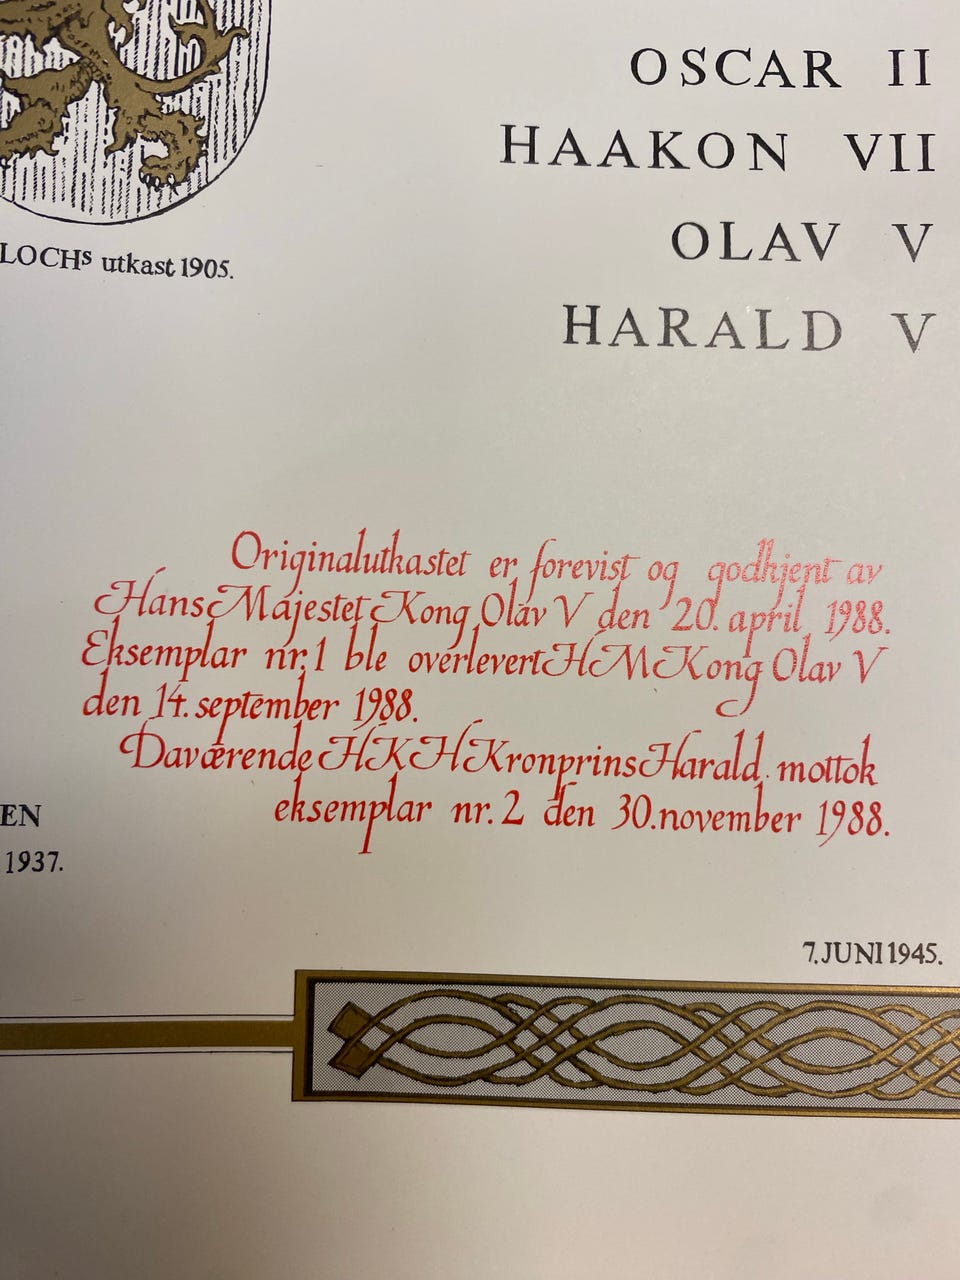 OSCAR II
HAAKON VII
OLAV V
HARALD V
LOCHs utkast 1905.
Originalutkastet er forevist og godkjent av
Hans Majestet Kong Olav V den 20. april 1988.
Eksemplar nr. 1 ble overlevert H M Kong Olav V
den 14. september 1988.
Daværende H K H Kronprins Harald mottok
eksemplar nr. 2 den 30. november 1988.
EN
1937.
7. JUNI 1945.